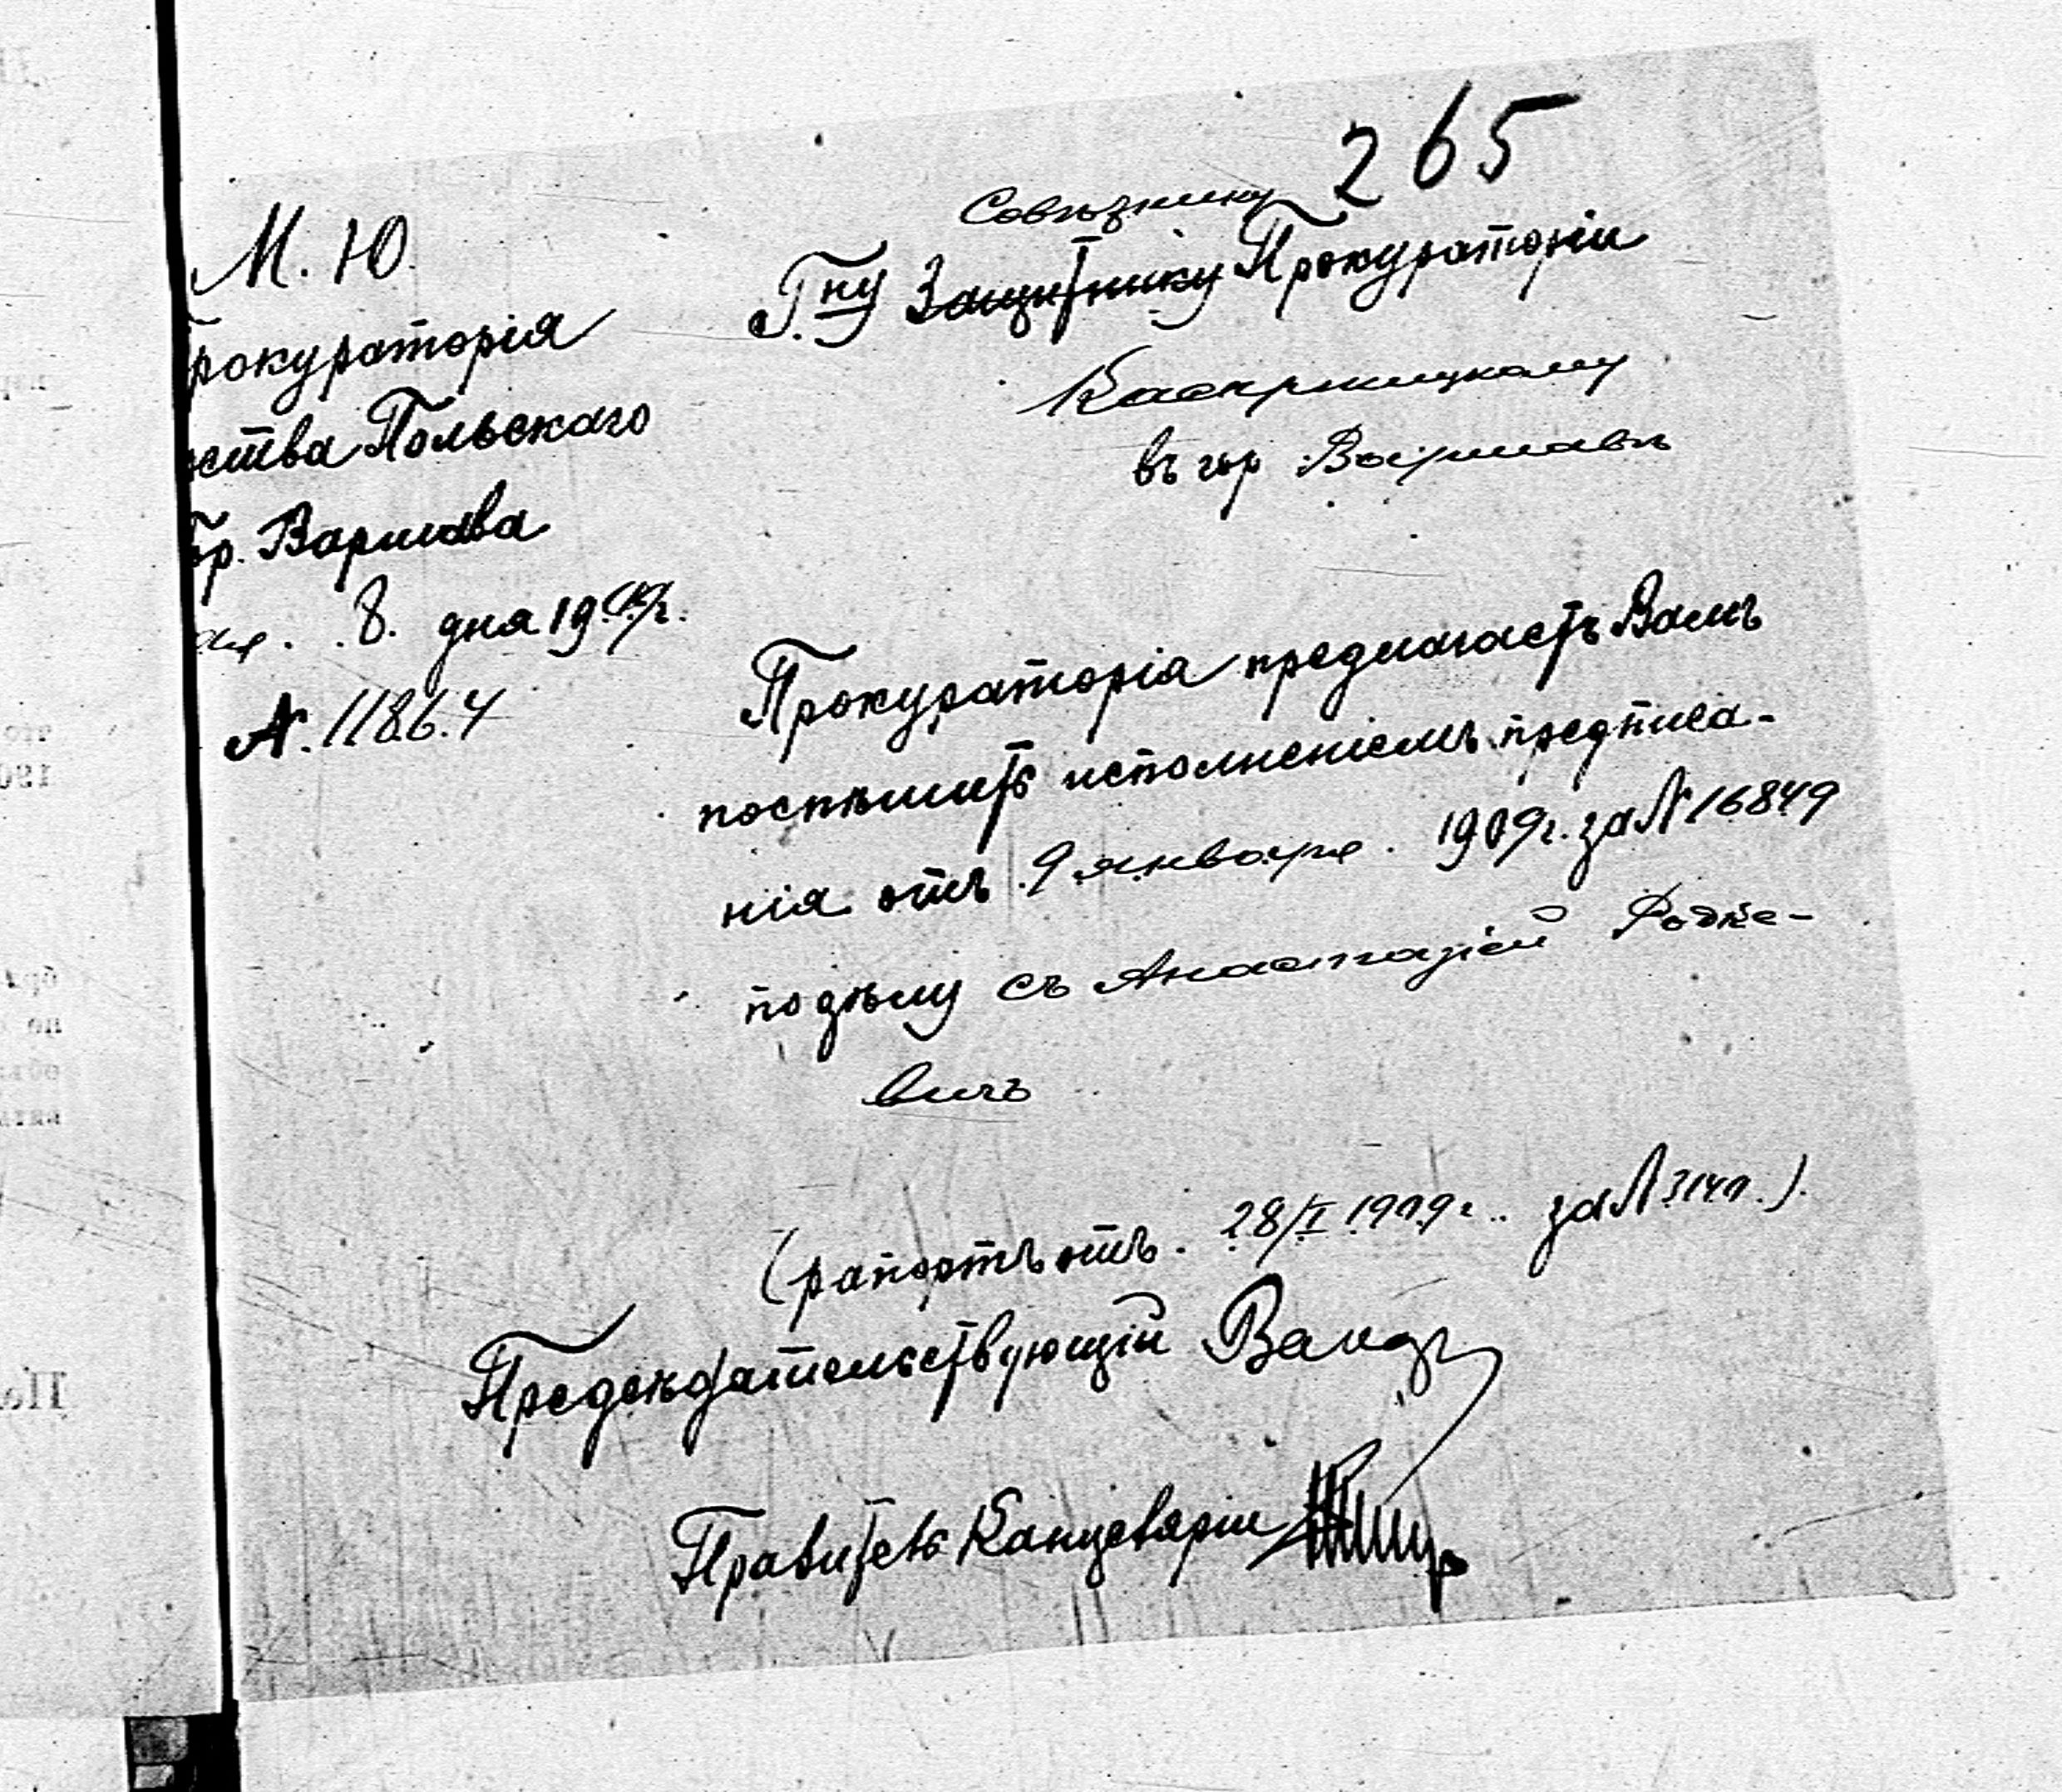 265
М. Ю.
рокураторія
ства Польскаго
гор. Варшава
8. дня 19
№. 11864
Совѣтнику
Г.ну Защитнику Прокураторіи
Каспржицкому
въ гор Варшавѣ
Прокураторія предлагаетъ Вамъ
поспѣшить исполненіемъ предписа-
нія отъ 9 января. 1909г. за № 16849
по дѣлу съ Анастазіей Родке-
вичъ
(рапортъ отъ. 28/I 1909г.. за № ).
Предсѣдательствующій
Правитель Канцеляріи